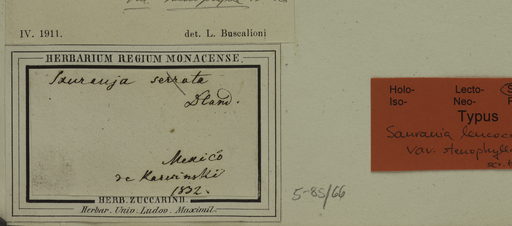 IV. 1911. det. L. Buscalioni
HERBARIUM REGIUM MONACENSE.
Sauranja serrata
Mexico
de Karwinski
1832.
HERB. ZUCCARINII.
Herbar. Univ. Ludov. Maximil.
5-85/66
Holo- Lecto-
Iso- Neo-
Typus
Saurauia
var. stenophylla